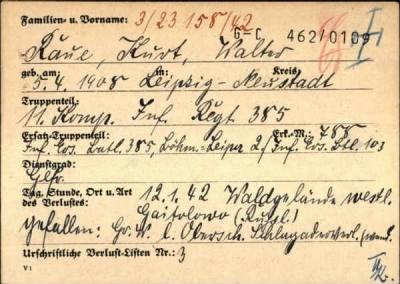 Familien- u. Vorname: 3/23 158/42
G-C 462/0109
Raue, Kurt, Walter
geb. am: in: Kreis
5.4.1908 Leipzig-Neustadt
Truppenteil:
11. Komp. Inf. Regt. 385
Ersatz-Truppenteil: Erk.-M.: 488
Inf. Ers. Batl. 385, Böhm.-Leipa 2/Inf. Ers. Btl. 103
Dienstgrad:
Gefr.
Tag, Stunde, Ort u. Art 12.1.42 Waldgelände westl.
des Verlustes: Gaitolowo (Russl.)
gefallen: Gr. W. l. Obersch. Schlagaderverl.
Urschriftliche Verlust-Listen Nr.: 3
V 1